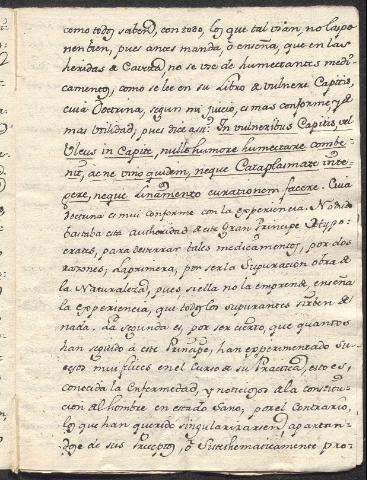 como todos saben, con todo, los que tal usan, no la po
nen bien, pues antes manda, ò enseña, que en las
heridas de Caveza, no se use de humectantes medi-
camentos, como se lee en su Libro de Vulnere Capitis,
cuia Doctrina, segun mi juicio, es mas conforme, y de
mas utilidad, pues dice assi: In vulneribus Capitis, vel
Ulcus in Capite, nullo humore humectare combe-
nit, ac ne vino quidem, neque Cataplasmate inte-
gere, neque linamento curationem facere. Cuia
doctrina es mui conforme con la experiencia. No
bastaba esta authoridad de este Gran Principe Hypo-
crates, para desterrar tales medicamentos, por dos
razones; La primera, por ser la Supuracion obra de
la Naturaleza, pues si ella no la emprende, enseña
la experiencia, que todos los supurantes sirben de
nada. La segunda es, por ser cierto, que quantos
han seguido à este Principe, han experimentado su-
cesos mui felices en el Curso de su Practica, esto es,
conocida la Enfermedad, y noticiosos de la constitu-
cion del hombre en estado Sano; por el Contrario,
los que han querido singularizarse, apartan-
dose de sus Preceptos, ò Systhematicamente pro-